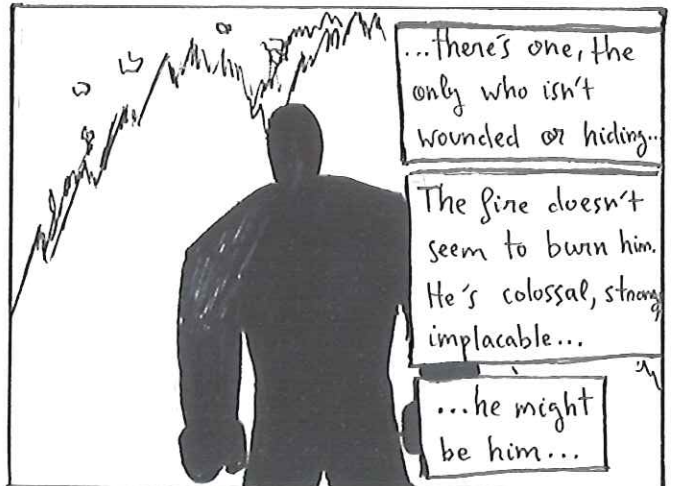 ...there's one, the
only who isn't
wounded or hiding...
The fire doesn't
seem to burn him.
He's colossal, strong
implacable...
...he might
be him...